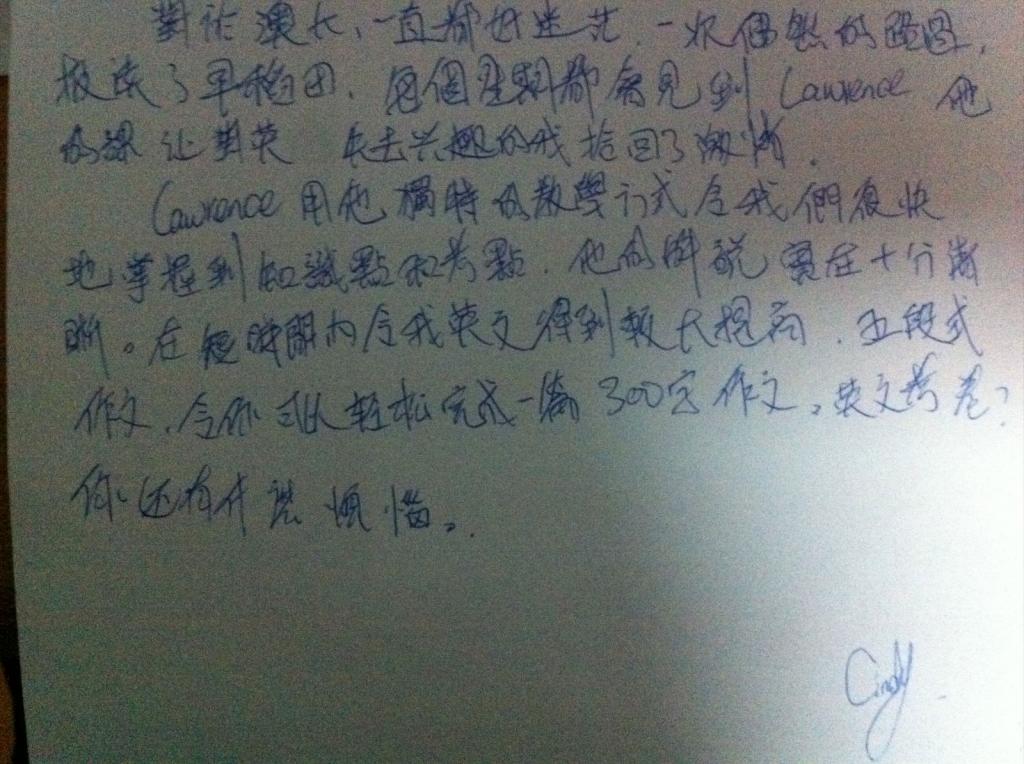 對於澳大,一直都好迷茫.一次偶然的路過,
報讀了早稻田.每個星期都會見到Lawrence 他
的課让對英 失去兴趣的我拾回了激情.
Lawrence用他獨特的教學方式令我們很快
地掌握到知識點和考點.他的解說實在十分清
晰。在短時間內令我英文得到較大提高.五段式
作文,令你可以轻松完成一篇300字作文。英文考卷?
你还有什麼煩惱。
Cindy